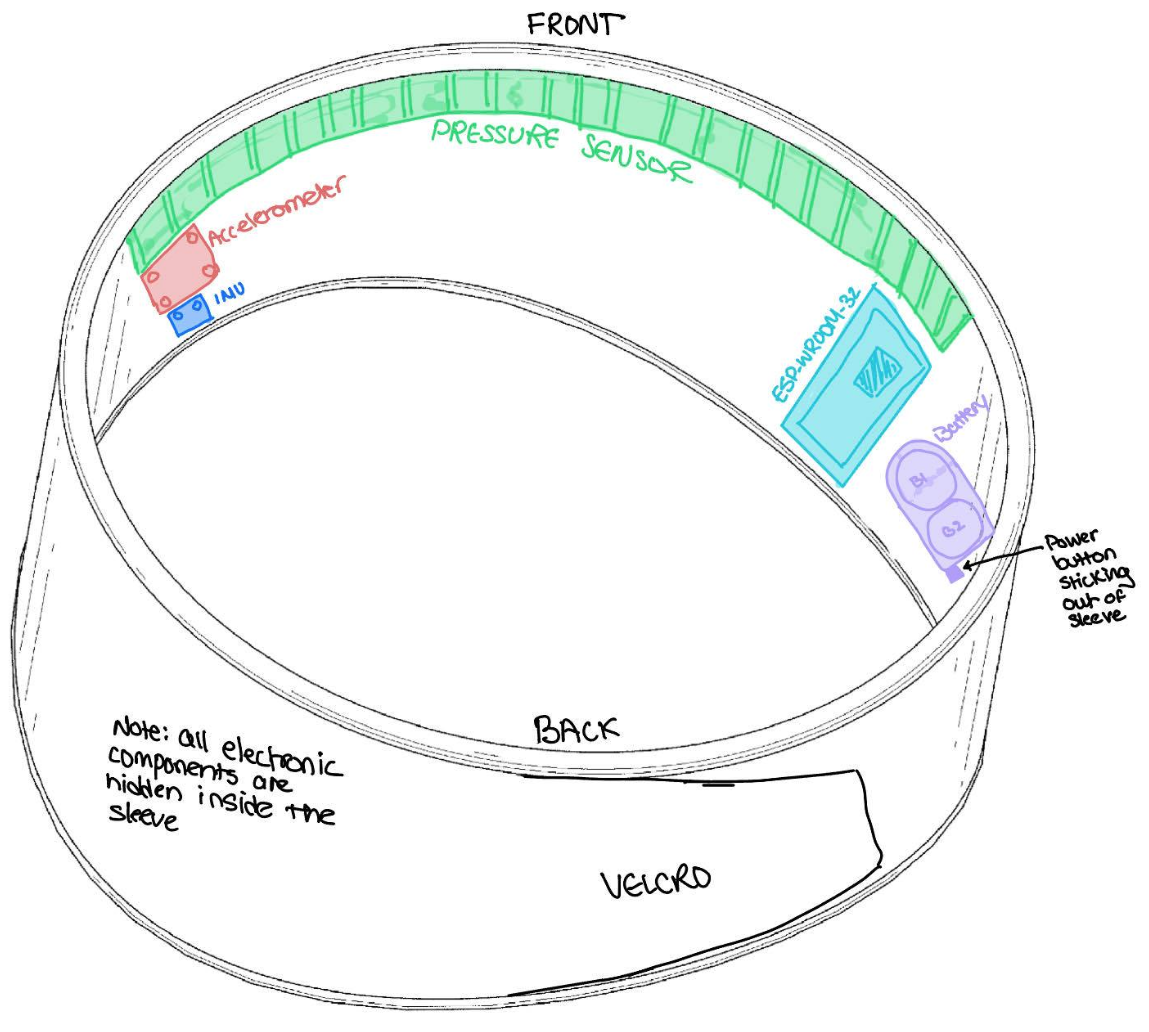 FRONT
PRESSURE SENSOR
Accelerometer
IMU
ESP-WROOM-32
Battery
B1
B2
Power
button
sticking
out of
sleeve
BACK
Note: all electronic
components are
hidden inside the
sleeve
VELCRO